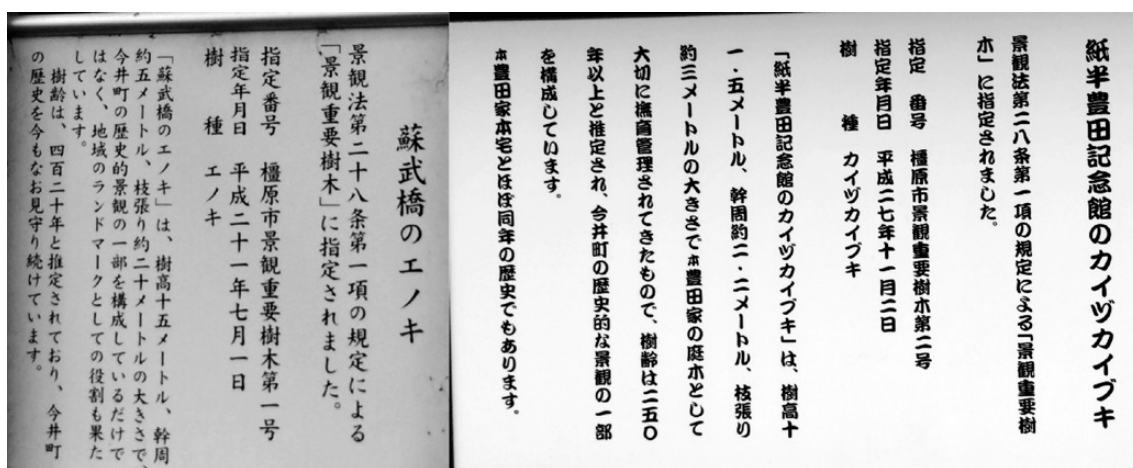 紙半豊田記念館のカイヅカイブキ
景観法第二八条第一項の規定による「景観重要樹
木」に指定されました。
指定 番号 橿原市景観重要樹木第二号
指定年月日 平成二七年十一月二日
樹 種 カイヅカイブキ
「紙半豊田記念館のカイヅカイブキ」は、樹高十
一・五メートル、幹周約二・二メートル、枝張り
約三メートルの大きさで本豊田家の庭木として
大切に撫育管理されてきたもので、樹齢は二五〇
年以上と推定され、今井町の歴史的な景観の一部
を構成しています。
本豊田家本宅とほぼ同年の歴史でもあります。
蘇武橋のエノキ
景観法第二十八条第一項の規定による
「景観重要樹木」に指定されました。
指定番号 橿原市景観重要樹木第一号
指定年月日 平成二十一年七月一日
樹 種 エノキ
「蘇武橋のエノキ」は、樹高十五メートル、幹周
約五メートル、枝張り約二十メートルの大きさで、
今井町の歴史的景観の一部を構成しているだけで
はなく、地域のランドマークとしての役割も果た
しています。
樹齢は、四百二十年と推定されており、今井町
の歴史を今もなお見守り続けています。